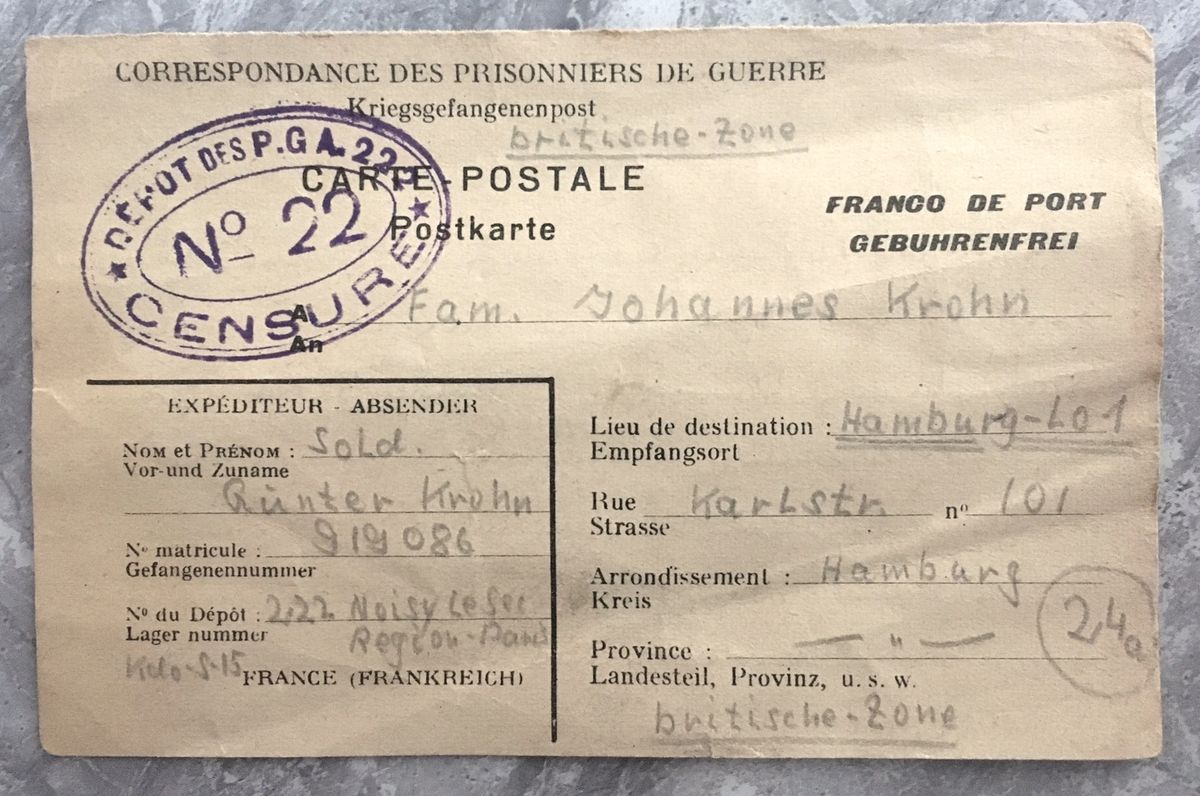 CORRESPONDANCE DES PRISONNIERS DE GUERRE
Kriegsgefangenenpost
britische-Zone
DÉPOT DES P.G.A. 222
Nº 22
CENSURE
CARTE POSTALE
Postkarte
FRANCO DE PORT
GEBUHRENFREI
A Fam. Johannes Krohn
An
EXPÉDITEUR - ABSENDER
NOM et PRÉNOM : Sold.
Vor-und Zuname
Günter Krohn
Nº matricule : 919 086
Gefangenennummer
Nº du Dépôt : 222 Noisy le Sec
Lager nummer Region-Paris
Kdo-S-15 FRANCE (FRANKREICH)
Lieu de destination : Hamburg-Lo 1
Empfangsort
Rue Karlstr. nº 101
Strasse
Arrondissement : Hamburg
Kreis
24a
Province : — " —
Landesteil, Provinz, u. s. w.
britische-Zone